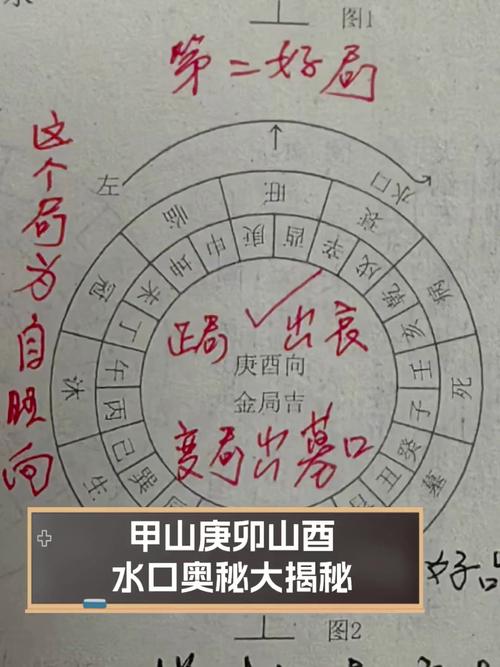 图1
第二好局
这个局为自旺向
左
水口
生 沐 冠 临 旺 衰 病 死 墓
巽 巳 丙 午 丁 未 坤 申 庚 酉 辛 戌 乾 亥 壬 子 癸 丑
正局 出衰
庚酉向
金局吉
变局出墓口
甲山庚卯山酉
水口奥秘大揭秘
好
图2